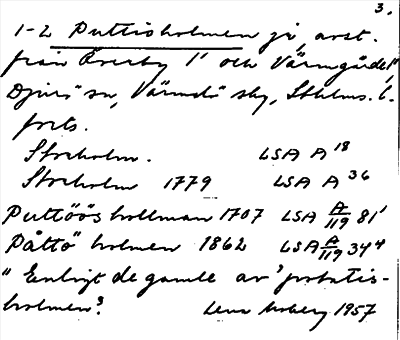 3.
1-2 Puttisholmen jä, avst.
från Överby 1¹ och Värmgårde 1¹,
Djurö sn, Värmdö skg, Sthlms. l.
forts.
Storholm. LSA A 18
Storholm 1779 LSA A 36
Puttöös hollman 1707 LSA A/119 81¹
Påttö holmen 1862 LSA A/119 34⁴
" Enligt de gamle av 'potatis-
holmen'? Lena Moberg 1957